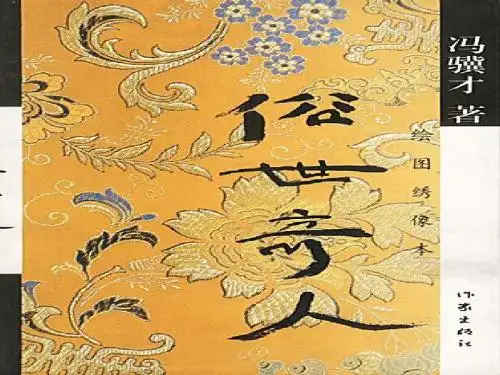 冯骥才 著
俗世奇人
绘图绣像本
作家出版社